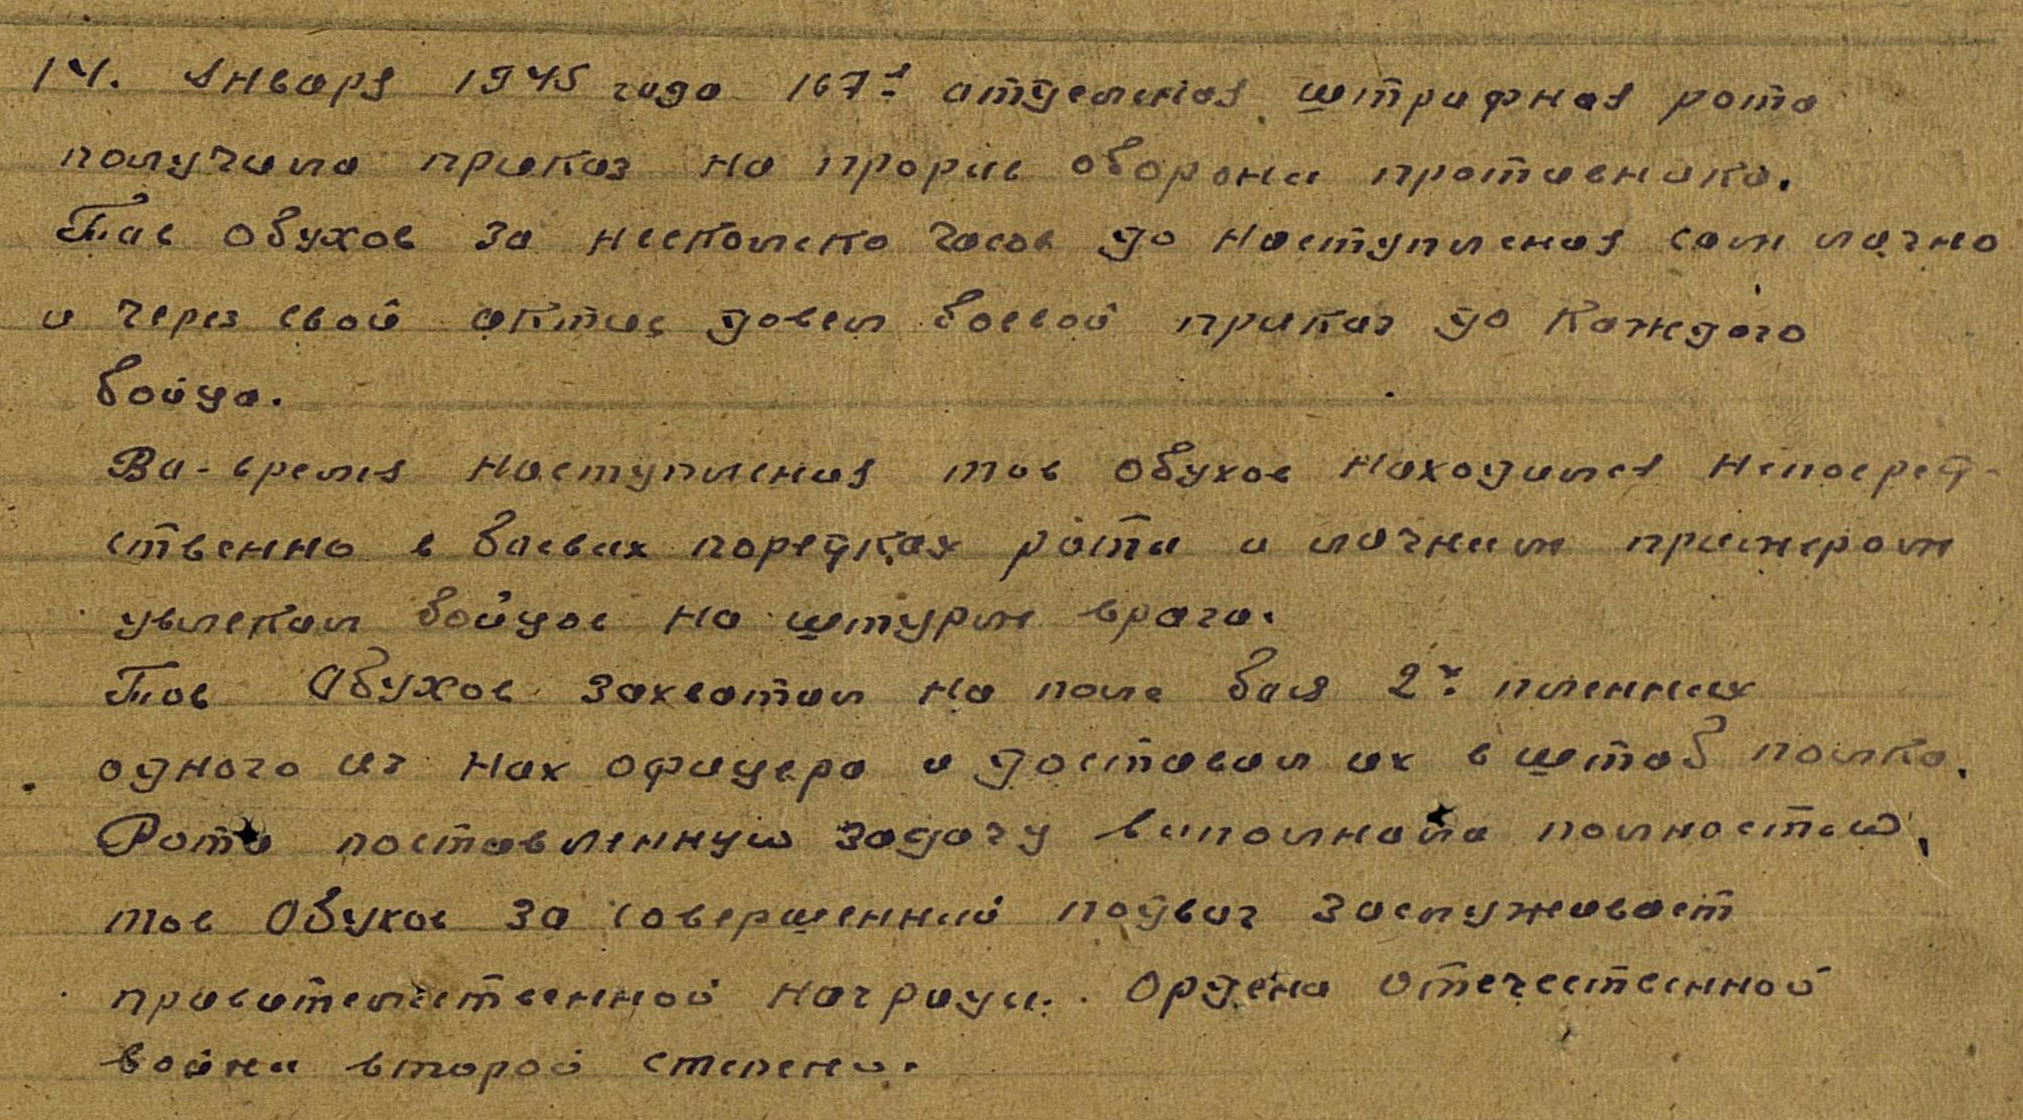 14. Января 1945 года 167я отделеная штрафная рота
получила приказ на прорыв обороны противника.
Тов Обухов за несколько часов до наступления сам лично
и через свой актив довел боевой приказ до каждого
бойца.
Во-время наступления тов Обухов находился непосред-
ственно в боевых поредках роты и личным примером
увлекал бойцов на штурм врага.
Тов Обухов захватил на поле боя 2х пленных
одного из них офицера и доставил их в штаб полка.
Рота поставленную задачу выполнила полностью,
тов Обухов за совершенный подвиг заслуживает
правительственной награды. Ордена Отечественной
войны второй степени.